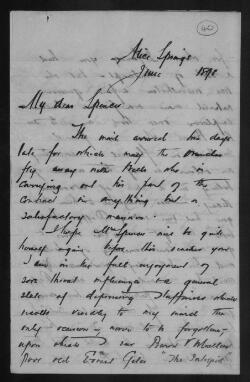 Alice Springs
June 1898
My dear Spencer
The mail arrived two days
late for which may the
fly away with who is
carrying out his part of the
Contract in anything but a
satisfactory manner.
I hope Mrs Spencer will be quite
herself again before this reaches you
I am in the full enjoyment of
sore throat influenza & a general
state of depressing
recalls vividly to my mind the
only occasion never to be forgotten
upon which I saw Baron
Poor old Ernest Giles "The Intrepid"